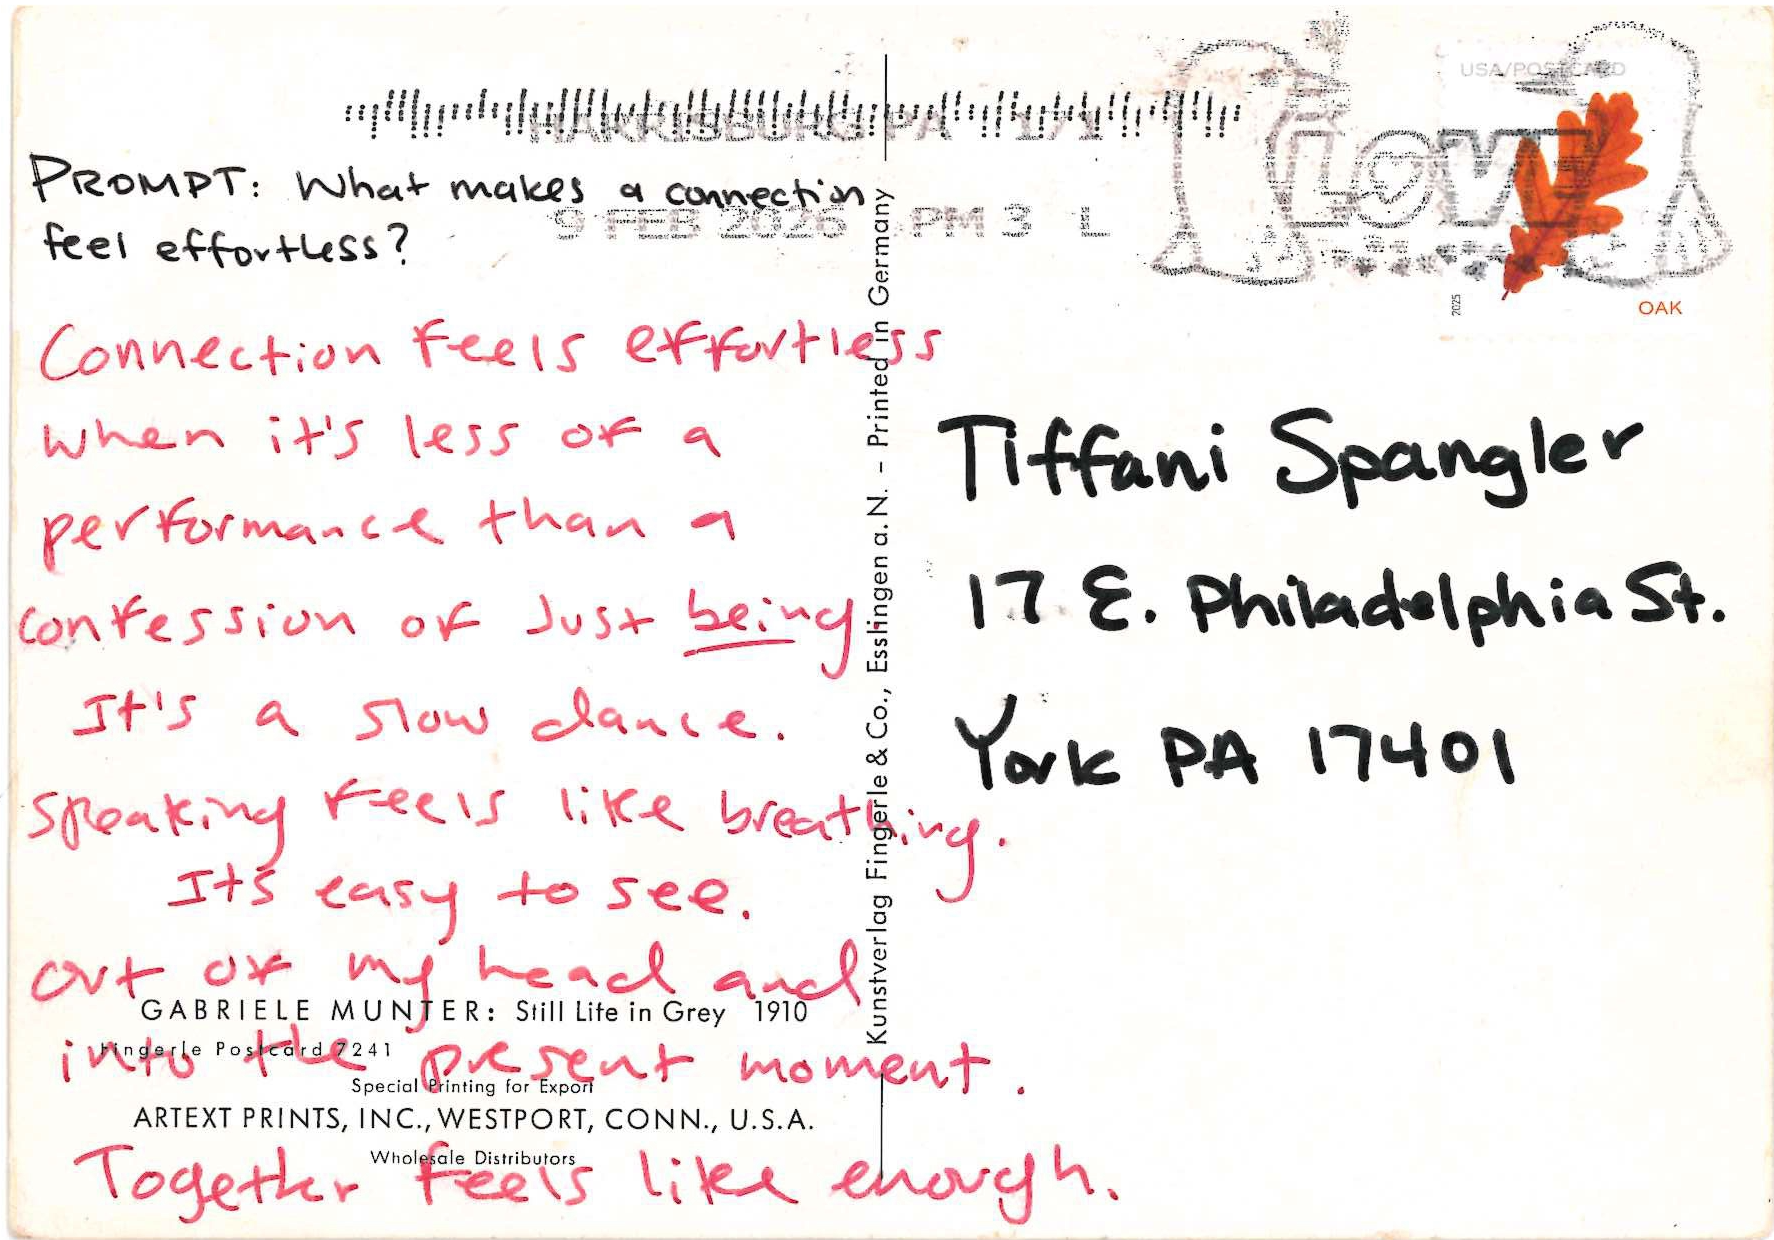 HARRISBURG PA 171
9 FEB 2026 PM 3 L
LOVE
USA/POSTCARD
2025
OAK
PROMPT: What makes a connection
feel effortless?
Connection feels effortless
when it's less of a
performance than a
confession of just being
It's a slow dance.
speaking feels like breathing.
It's easy to see.
out of my head and
into the present moment.
Together feels like enough.
GABRIELE MUNTER: Still Life in Grey 1910
Fingerle Postcard 7241
Special Printing for Export
ARTEXT PRINTS, INC., WESTPORT, CONN., U.S.A.
Wholesale Distributors
Kunstverlag Fingerle & Co., Esslingen a. N. – Printed in Germany
Tiffani Spangler
17 E. Philadelphia St.
York PA 17401